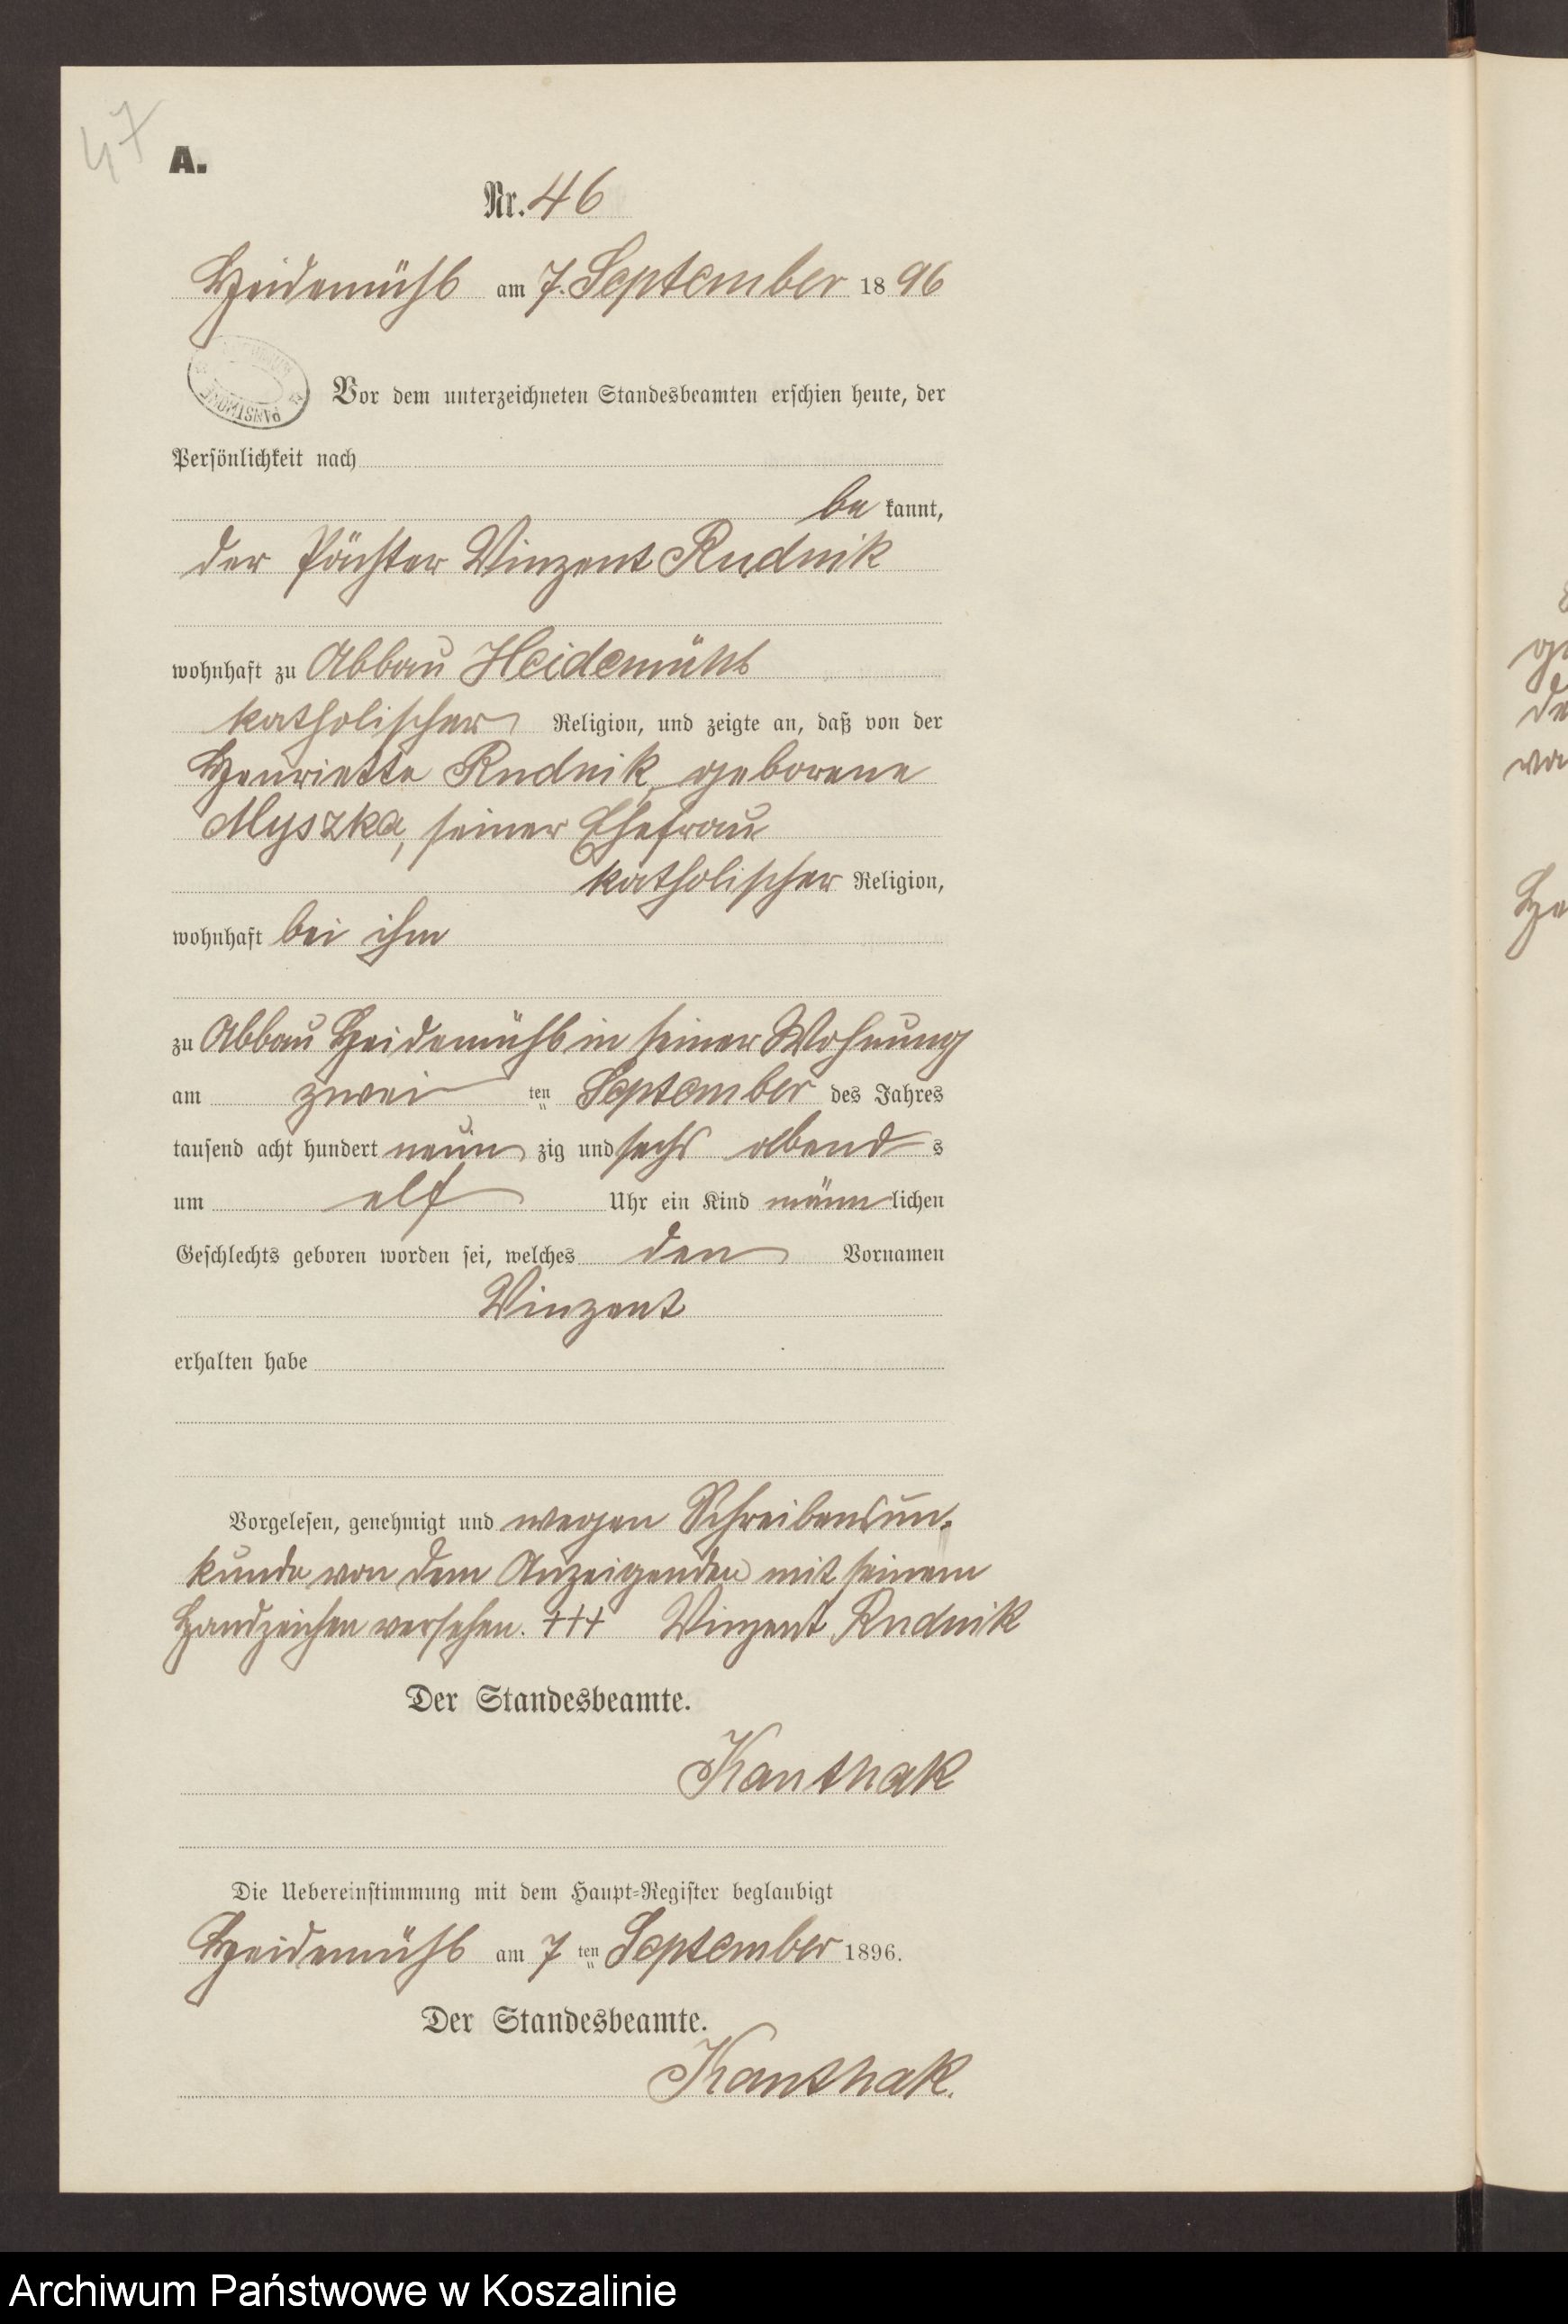 47
A.
Nr. 46
Heidemühl am 7. September 1896
PAŃSTWOWE
Vor dem unterzeichneten Standesbeamten erschien heute, der
Persönlichkeit nach
be kannt,
der Pächter Vinzent Rudnik
wohnhaft zu Abbau Heidemühl
katholischer Religion, und zeigte an, daß von der
Henriette Rudnik, geborene
Myszka, seiner Ehefrau
katholischer Religion,
wohnhaft bei ihm
zu Abbau Heidemühl in seiner Wohnung
am zwei ten September des Jahres
tausend acht hundert neun zig und sechs abend s
um elf Uhr ein Kind männ lichen
Geschlechts geboren worden sei, welches den Vornamen
Vinzent
erhalten habe
Vorgelesen, genehmigt und wegen Schreibensun-
kunde von dem Anzeigenden mit seinem
Handzeichen versehen. +++ Vinzent Rudnik
Der Standesbeamte.
Kanthak
Die Uebereinstimmung mit dem Haupt-Register beglaubigt
Heidemühl am 7 ten September 1896.
Der Standesbeamte.
Kanthak.
Archiwum Państwowe w Koszalinie